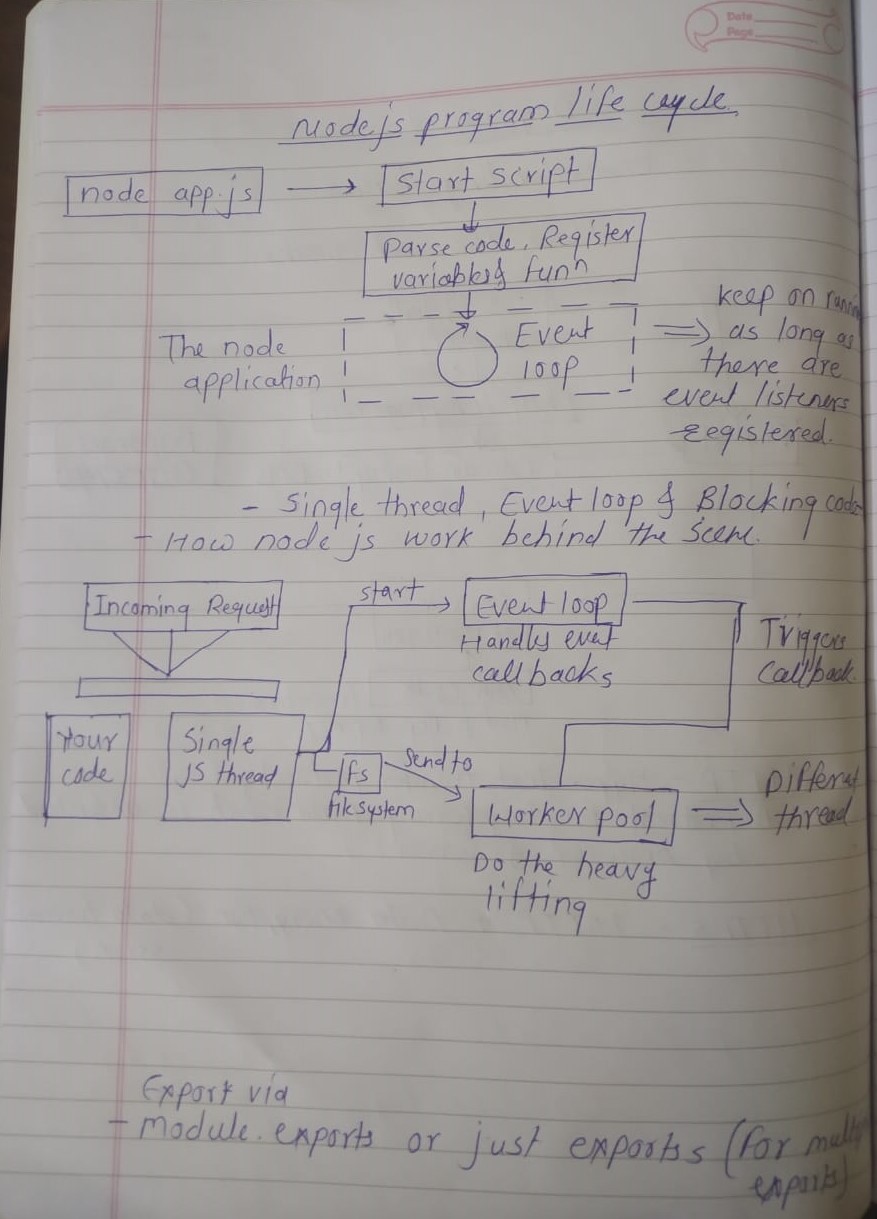 Date
Page
Nodejs program life cycle
node app.js
Start script
Parse code, Register
variables & funn
The node
application
Event
loop
keep on
as long as
there are
event listeners
registered.
- Single thread, Event loop & Blocking code
- How node js work behind the scene.
Incoming Request
start
Event loop
Handles event
callbacks
Triggers
Callback
Your
code
Single
JS thread
fs
file system
Send to
Worker pool
Different
thread
Do the heavy
lifting
Export via
- module.exports or just exports (for
exports)